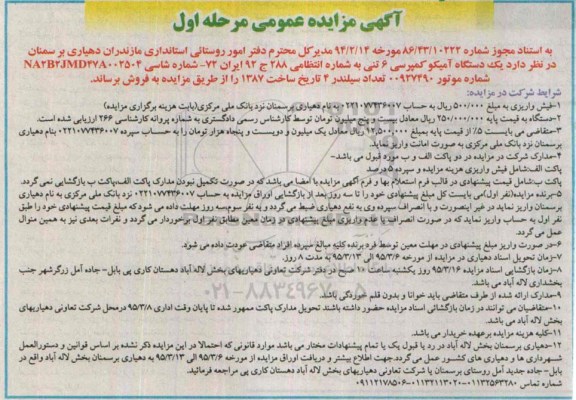 آگهی مزایده عمومی مرحله اول
به استناد مجوز شماره ۸۶/۴۳/۱۰۲۲۲ مورخه ۹۴/۲/۱۴ مدیرکل محترم دفتر امور روستائی استانداری مازندران دهیاری برسمنان
در نظر دارد یک دستگاه آمیکو کمپرسی ۶ تنی به شماره انتظامی ۲۸۸ ج ۹۲ ایران ۷۲- شماره شاسی NA2B2JMD37A000250۴
شماره موتور ۰۰۹۲۷۴۹۰ تعداد سیلندر ۴ تاریخ ساخت ۱۳۸۷ را از طریق مزایده به فروش برساند.
شرایط شرکت در مزایده:
۱-فیش واریزی به مبلغ ۵۰۰/۰۰۰ ریال به حساب ۰۲۲۱۰۷۷۴۳۶۰۰۷ به نام دهیاری برسمنان نزد بانک ملی مرکزی(بابت هزینه برگزاری مزایده)
۲-دستگاه به قیمت پایه ۲۵۰/۰۰۰/۰۰۰ ریال معادل بیست و پنج میلیون تومان توسط کارشناس رسمی دادگستری به شماره پروانه کارشناسی ۲۶۶ ارزیابی شده است.
۳-متقاضی می بایست ۵٪ از قیمت پایه بمبلغ ۱۲,۵۰۰,۰۰۰ ریال معادل یک میلیون و دویست و پنجاه هزار تومان را به حساب سپرده ۰۲۲۱۰۷۷۴۳۶۰۰۷ بنام دهیاری
برسمنان نزد بانک ملی مرکزی به صورت امانت واریز نماید.
۴-مدارک شرکت در مزایده در دو پاکت الف و ب مورد قبول می باشد-
پاکت الف:شامل فیش واریزی هزینه مزایده و سپرده ۵درصد
پاکت ب:شامل قیمت پیشنهادی در قالب فرم استعلام بها و فرم آگهی مزایده با امضا می باشد که در صورت تکمیل نبودن مدارک پاکت الف،پاکت ب بازگشایی نمی گردد.
۵-برنده مزایده(نفر اول)می بایست کل مبلغ پیشنهادی خود را تا سه روز بعد از بازگشایی اوراق مزایده به حساب ۰۲۲۱۰۷۷۴۳۶۰۰۷ نزد بانک ملی مرکزی به نام دهیاری
برسمنان واریز نماید در غیر اینصورت و با انصراف سپرده وی به نفع دهیاری ضبط می گردد و به نفر سوم سه روز مهلت داده می شود که مبلغ قیمت پیشنهادی خود را طبق
نفر اول به حساب واریز نماید که در صورت انصراف یا عدم واریزی مبلغ پیشنهادی در زمان معین مطابق نفر اول برخوردار می گردد و نفرات بعدی نیز به همین منوال
عمل می گردد.
۶-در صورت واریز مبلغ پیشنهادی در مهلت معین توسط فرد برنده کلیه مبالغ سپرده افراد متقاضی عودت داده می شود.
۷-زمان تحویل اسناد دهیاری در مزایده از مورخه ۹۵/۳/۶ الی ۹۵/۳/۱۳ به مدت ۸ روز.
۸-زمان بازگشایی اسناد مزایده ۹۵/۳/۱۶ روز یکشنبه ساعت ۱۰ صبح در دفتر شرکت تعاونی دهیاریهای بخش لاله آباد دهستان کاری پی بابل- جاده آمل زرگرشهر جنب
بخشداری لاله آباد می باشد.
۹-مدارک ارائه شده از طرف متقاضی باید خوانا و بدون قلم خوردگی باشد.
۱۰-متقاضیان می توانند در زمان بازگشائی اسناد مزایده حضور داشته باشند. تحویل مدارک پاکت ممهور شده تا پایان وقت اداری ۹۵/۳/۸ درمحل شرکت تعاونی دهیاریهای
بخش لاله آباد می باشد.
۱۱-کلیه هزینه مزایده برعهده خریدار می باشد.
۱۲-دهیاری برسمنان بخش لاله آباد در رد یا قبول یک یا تمام پیشنهادات مختار می باشد موارد قانونی که احتمالا در این مزایده ذکر نشده بر اساس قوانین و دستورالعمل
شهرداری ها و دهیاری های کشور عمل می گردد.جهت اطلاع بیشتر و دریافت اوراق مزایده از مورخه ۹۵/۳/۶ الی ۹۵/۳/۱۳ به دهیاری برسمنان بخش لاله آباد واقع در
بابل- جاده جدید آمل روستای برسمنان یا شرکت تعاونی دهیاریهای بخش لاله آباد دهستان کاری پی مراجعه فرمائید.
شماره تماس ۰۱۱۳۲۵۶۳۲۸۰-۰۱۱۳۲۱۱۳۰۲۰-۰۹۱۱۲۱۷۸۵۰۶
۰۲۱-۸۸۳۴۹۶۷۰-۵